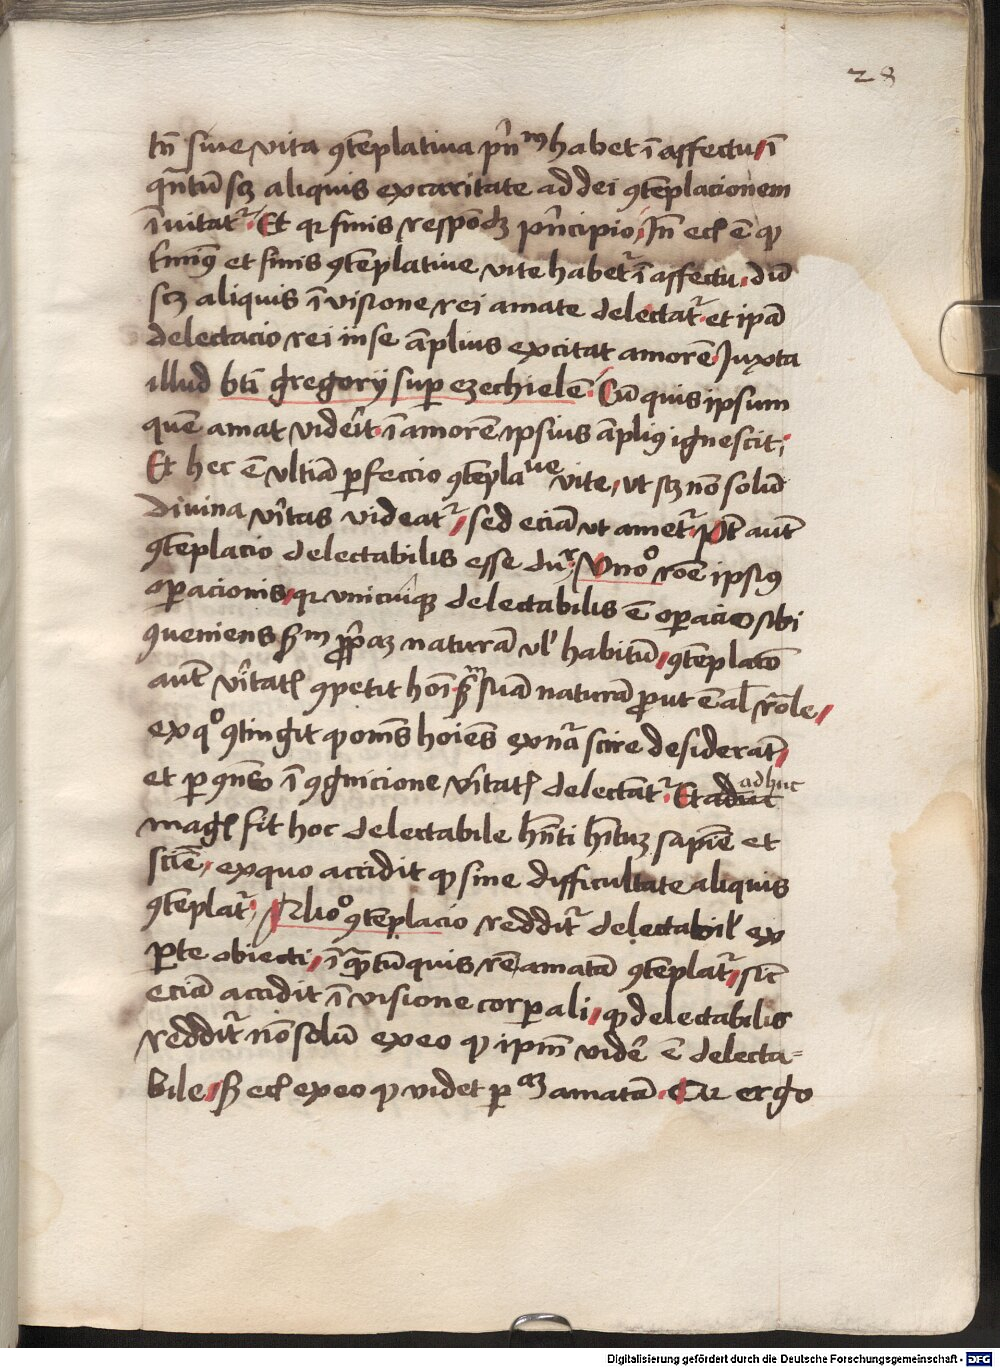 28
tn̄ siue vita ꝯtēplatiua pⁱnᵐ habet ī affectu ī
qn̄tū scꝫ aliquis ex caritate ad dei ꝯtēplacionem
īuitatʳ Et qꝛ finis respōdꝫ pⁱncipio Īn ecī ē ꝙ
ſminꝰ et finis ꝯtēplatiue vite habetʳ ī affectu dū
scꝫ aliquis ī visione rei amate delectatʳ et ipā
delectacio rei in se āplius excitat amorē Juxta
illud btī gregorij sup ezechielē Cū quis ipsum
quē amat viderit ī amorē ipsius āpliꝰ ignescit
Et hec ē vltiā ꝑfeccio ꝯtēplaᵘᵉ vite vt scꝫ nō solū
diuina vⁱtas videatʳ sed eciā vt ametʳ pt̄ aut̄
ꝯtēplacio delectabilis esse dupʳ Vnoᵒ rōe ipsiꝰ
oꝑacionis qꝛ vnicuiqꝫ delectabilis ē oꝑacio sibi
ꝯueniens sm̄ ppⁱaꝫ naturā vl' habitū ꝯtēplatō
aut̄ vⁱtatꝭ ꝯpetit hoī sᵐ suā naturā ꝓut ē al̄ rōle
ex qᵒ ꝯtingit ꝙ oms̄ hoīes ex nā scire desiderāt
et ꝑ ꝯn̄s ī ꝯgnicione vⁱtatꝭ delectant̄ʳ Et aduc adhuc
magꝭ fit hoc delectabile hn̄ti hītuꝫ sapiē et
sciē ex quo accidit ꝙ sine difficultate aliquis
ꝯtēplatʳ Alioᵒ ꝯtēplacio redditʳ delectabil' ex
ꝑte obiecti ī qᵃtū quis rē amatā ꝯtēplatʳ sic̄
eciā accidit ī visione corꝑali ꝙ delectabilis
redditʳ nō solū ex eo ꝙ ipm̄ vidē ē delecta=
bile sꝫ ecī ex eo ꝙ videt ꝑᵃꝫ amatā Cū ergo
Digitalisierung gefördert durch die Deutsche Forschungsgemeinschaft - DFG